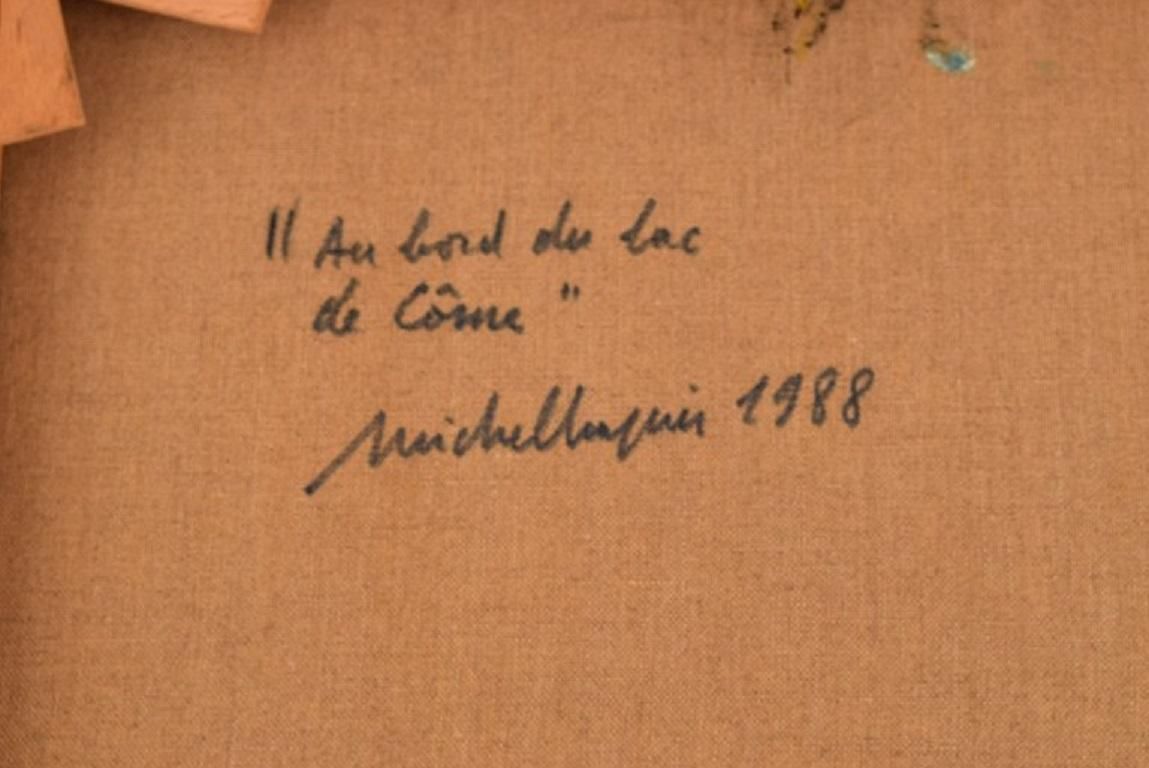 "Au bord du lac
de Côme"
Michelhuguis 1988